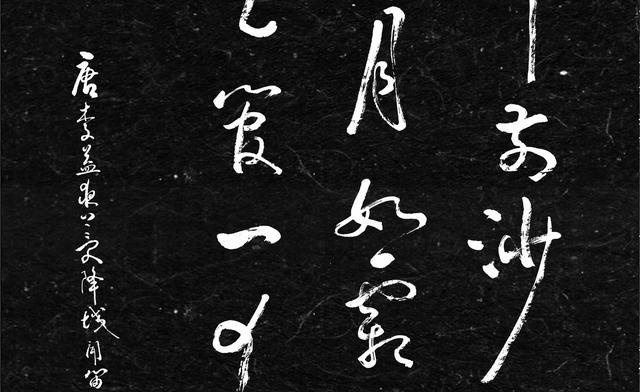 前沙
月如霜
管一
唐李益夜上受降城聞笛